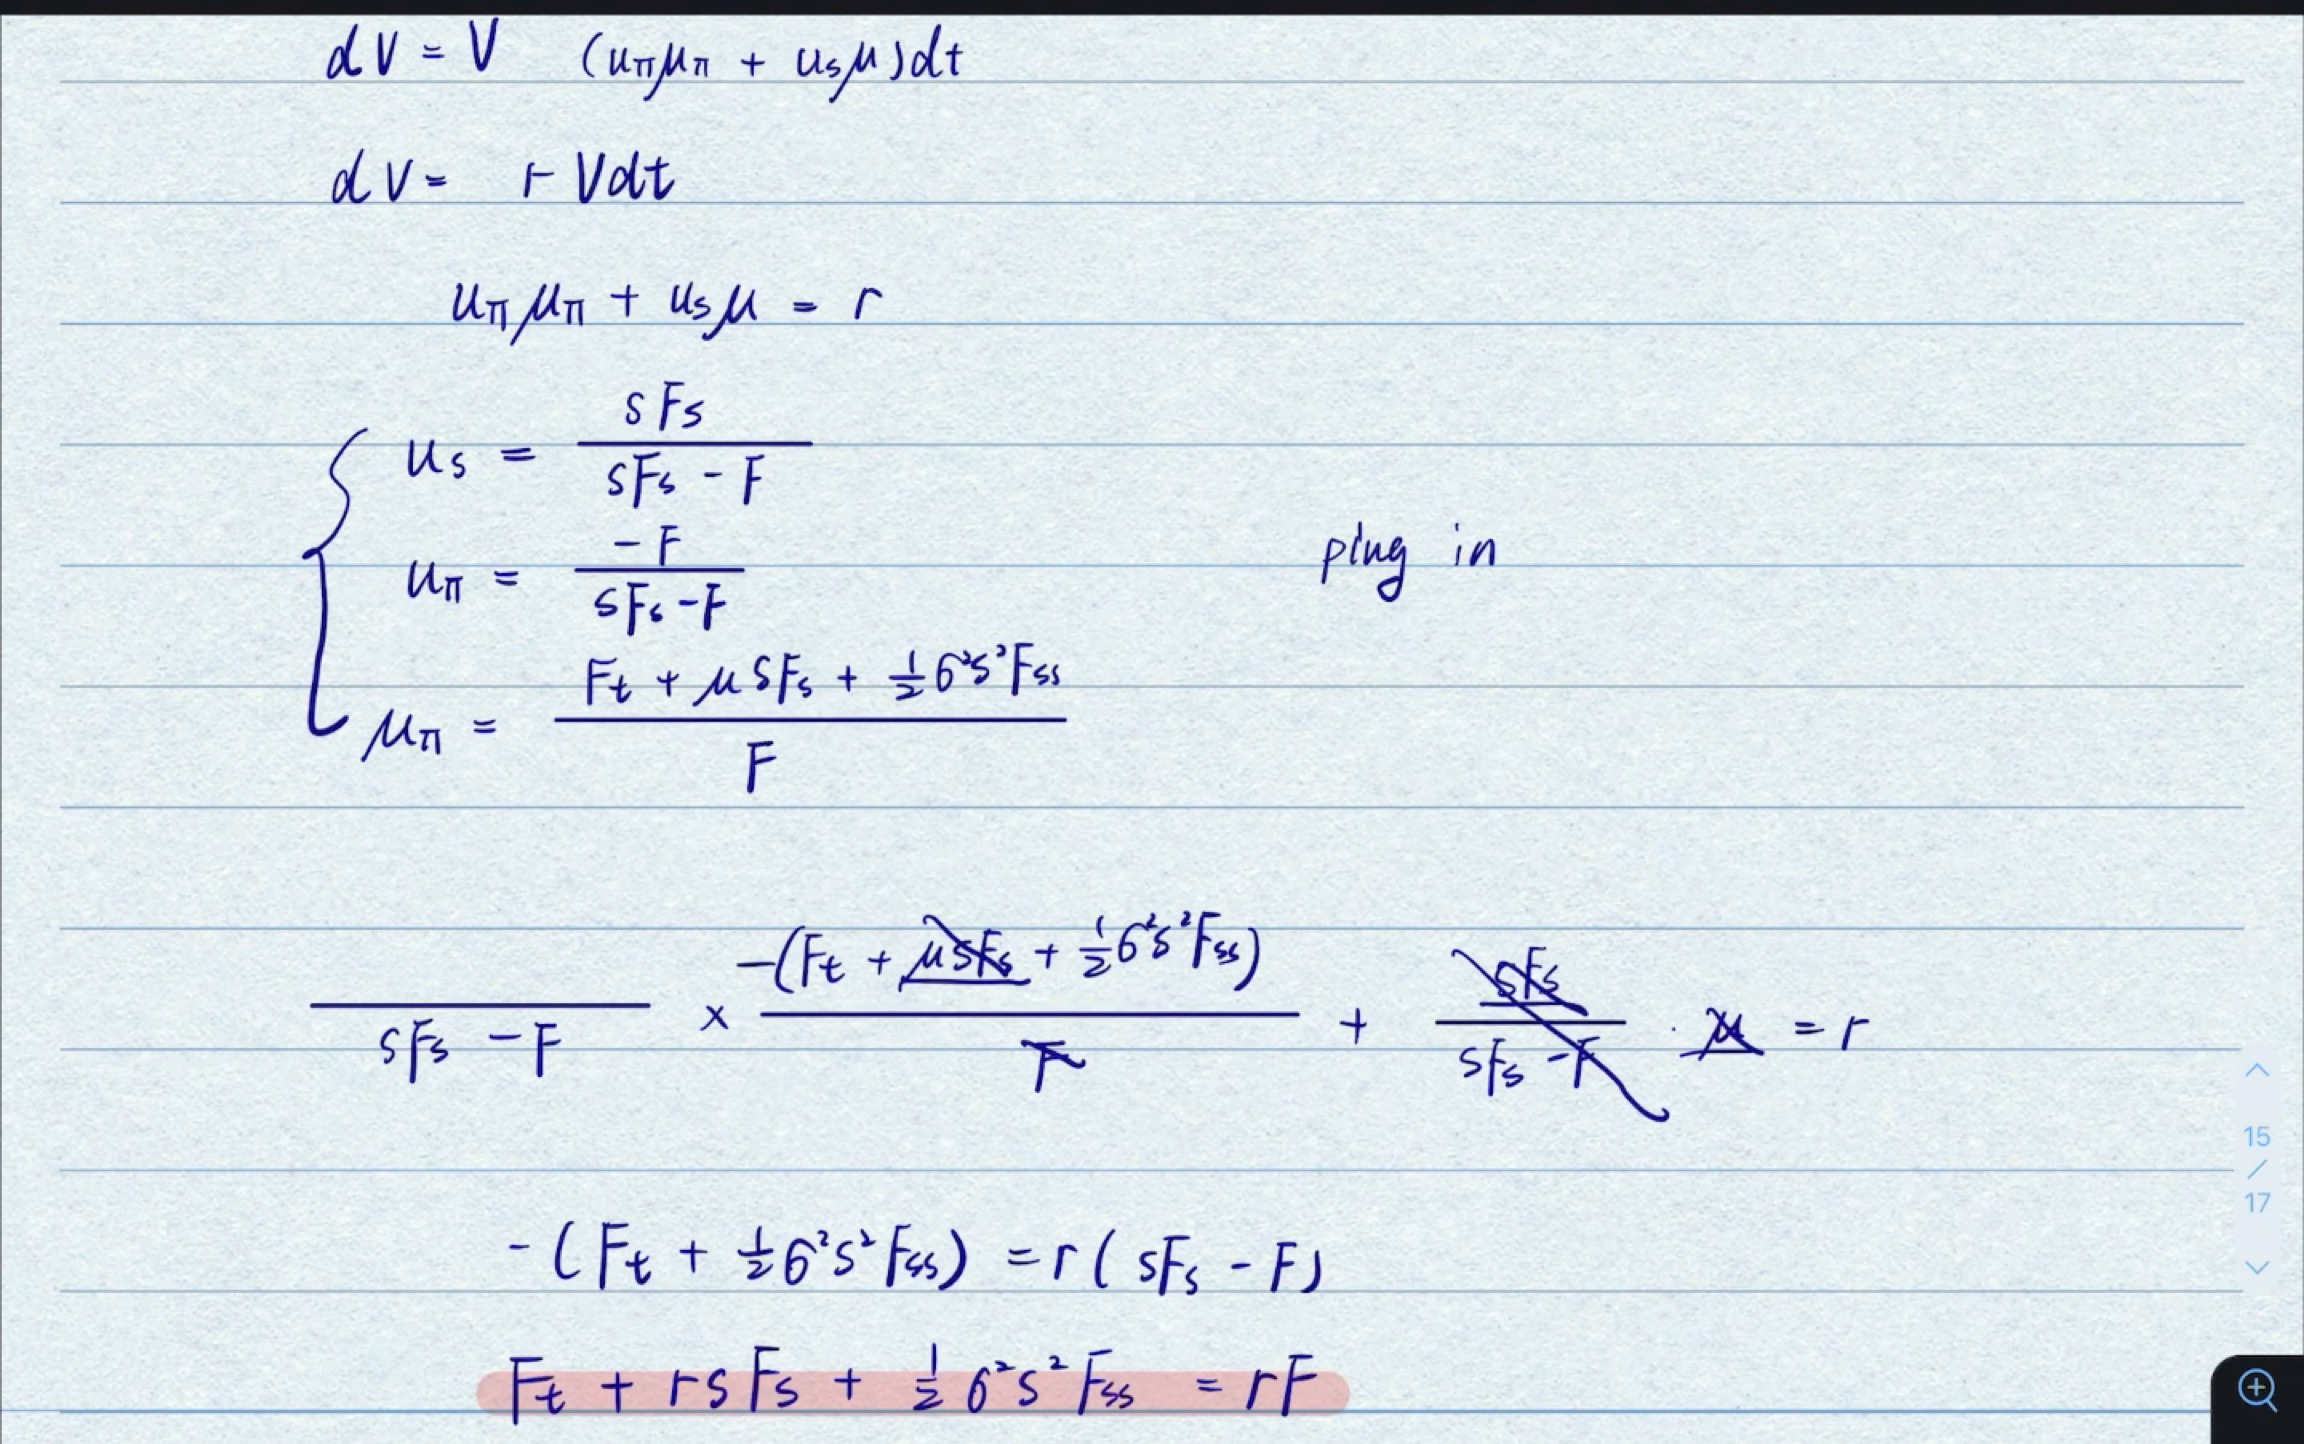 dV = V (u_π μ_π + u_s μ) dt
dV = r V dt
u_π μ_π + u_s μ = r
u_s = \frac{sF_s}{sF_s - F}
u_π = \frac{-F}{sF_s - F}
plug in
μ_π = \frac{F_t + μ s F_s + \frac{1}{2} σ² s² F_{ss}}{F}
\frac{}{sF_s - F} × \frac{-(F_t + μ s F_s + \frac{1}{2} σ² s² F_{ss})}{F} + \frac{sF_s}{sF_s - F} · μ = r
-(F_t + \frac{1}{2} σ² s² F_{ss}) = r (sF_s - F)
F_t + r s F_s + \frac{1}{2} σ² s² F_{ss} = rF
15
/
17